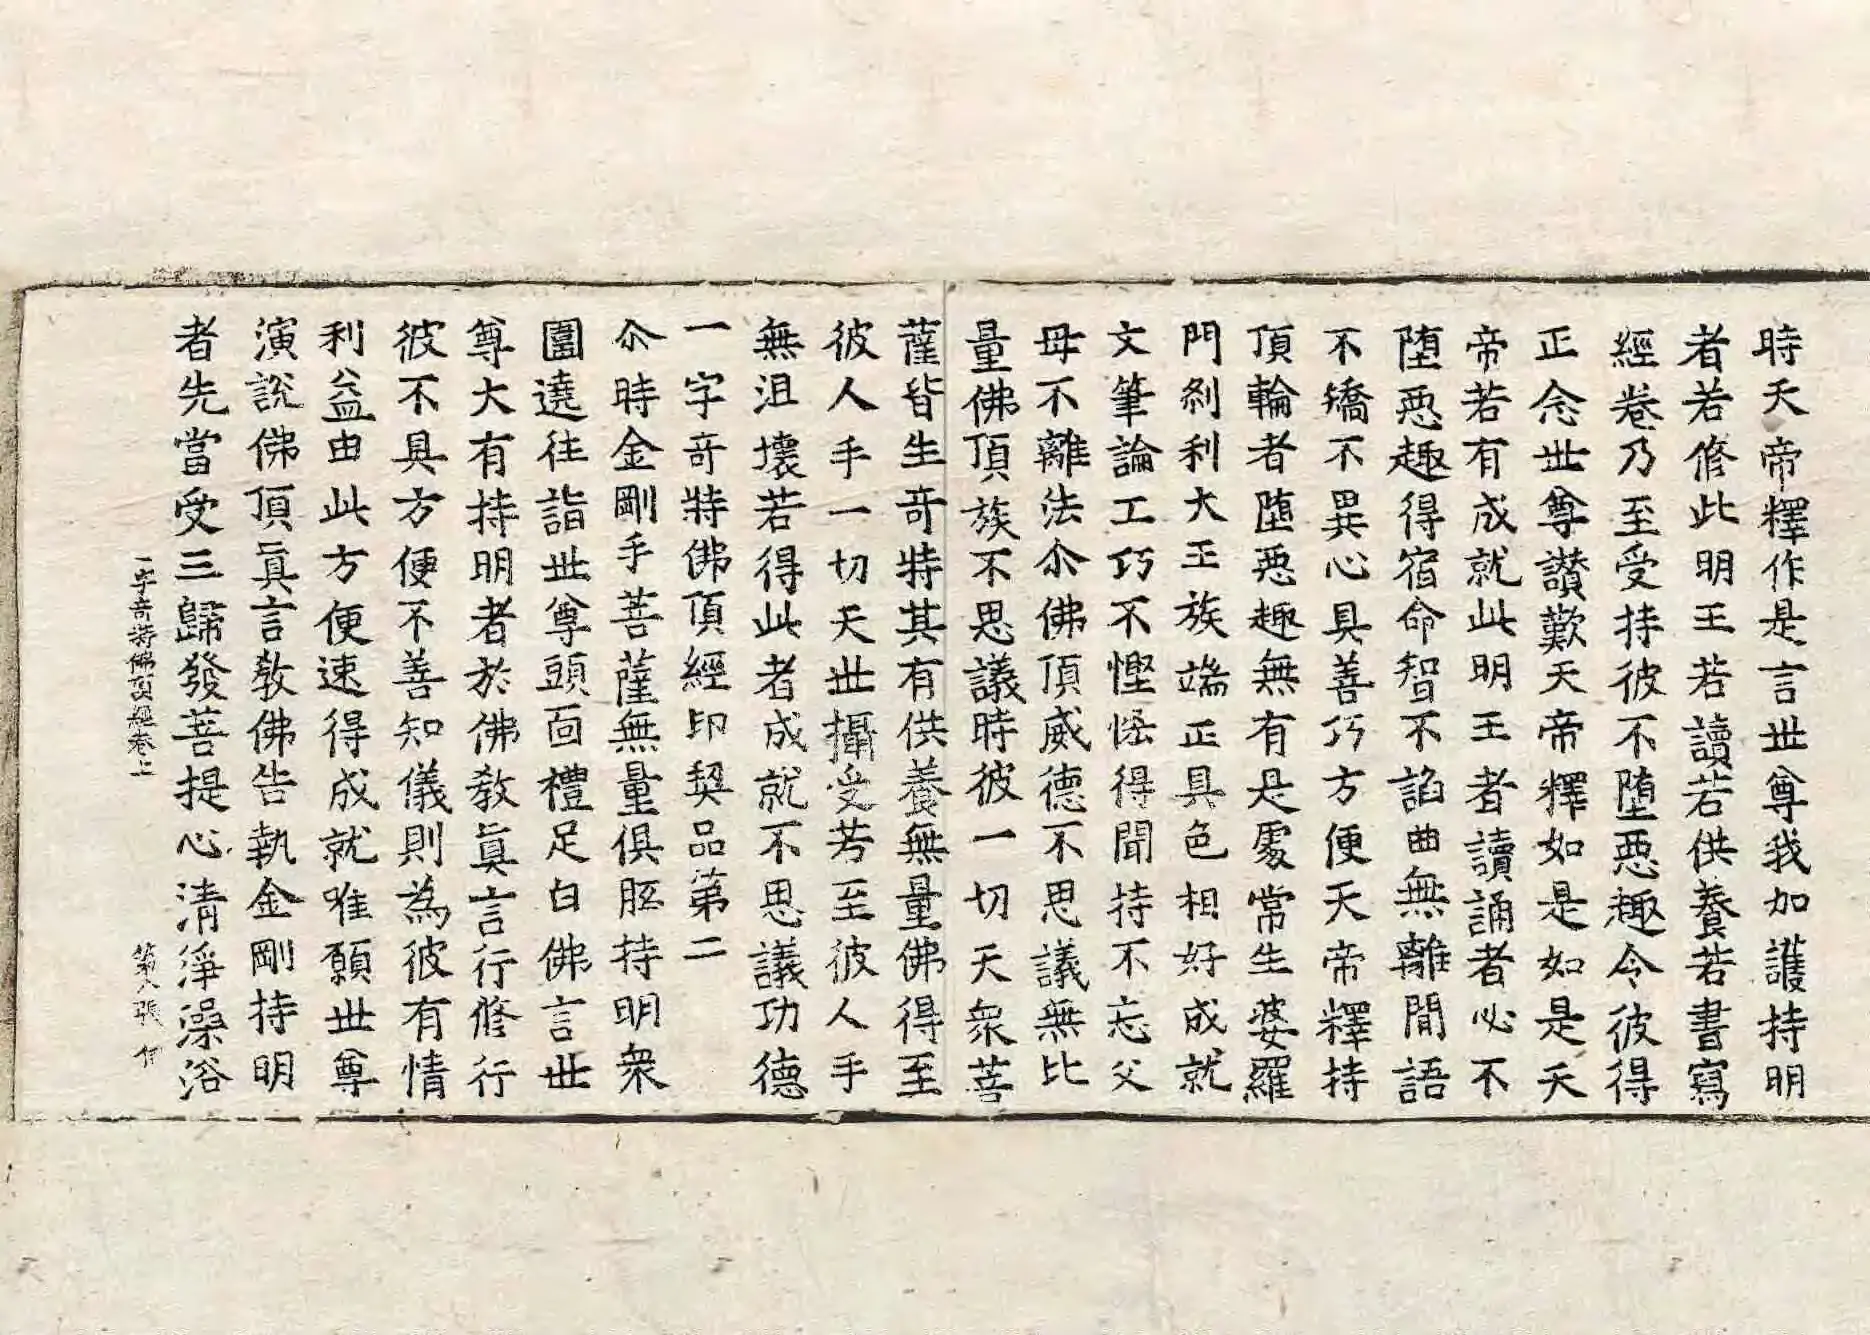 時天帝釋作是言世尊我加護持明
者若修此明王若讀若供養若書寫
經卷乃至受持彼不墮惡趣令彼得
正念世尊讚歎天帝釋如是如是天
帝若有成就此明王者讀誦者必不
墮惡趣得宿命智不諂曲無離間語
不矯不異心具善巧方便天帝釋持
頂輪者墮惡趣無有是處常生婆羅
門剎利大王族端正具色相好成就
文筆論工巧不慳悋得聞持不忘父
母不離法尒佛頂威德不思議無比
量佛頂族不思議時彼一切天衆菩
薩皆生奇特其有供養無量佛得至
彼人手一切天世攝受若至彼人手
無沮壞若得此者成就不思議功德
一字奇特佛頂經印契品第二
尒時金剛手菩薩無量俱胝持明衆
圍遶往詣世尊頭面禮足白佛言世
尊大有持明者於佛教眞言行修行
彼不具方便不善知儀則為彼有情
利益由此方便速得成就唯願世尊
演說佛頂眞言教佛告執金剛持明
者先當受三歸發菩提心清淨澡浴
一字奇特佛頂經卷上 張